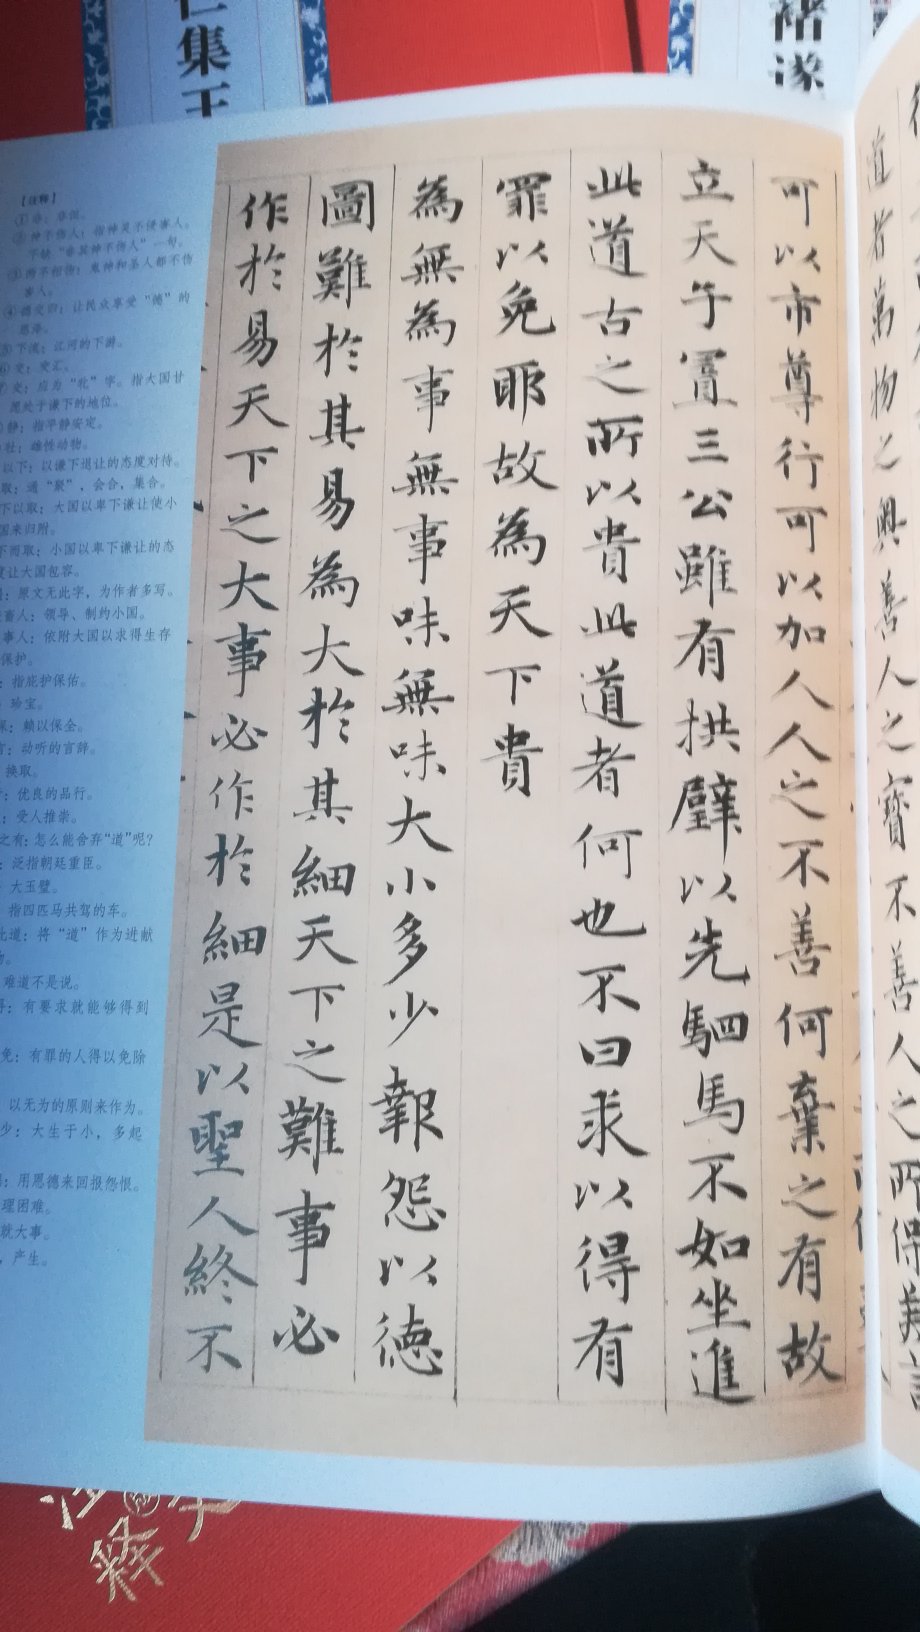 仁集王
褚遂
道者萬物之奧善人之寶不善人之所保美言
可以市尊行可以加人人之不善何棄之有故
立天子置三公雖有拱璧以先駟馬不如坐進
此道古之所以貴此道者何也不曰求以得有
罪以免耶故為天下貴
為無為事無事味無味大小多少報怨以德
圖難於其易為大於其細天下之難事必
作於易天下之大事必作於細是以聖人終不
【注释】
①非：非但。
②神不伤人：指神灵不侵害人。
下缺“非其神不伤人”一句。
③两不相伤：鬼神和圣人都不伤
害人。
④德交归：让民众享受“德”的
恩泽。
⑤下流：江河的下游。
⑥交：交汇。
⑦交：应为“牝”字。指大国甘
愿处于谦下的地位。
静：指平静安定。
牡：雄性动物。
以下：以谦下退让的态度对待。
取：通“聚”，会合，集合。
下以取：大国以卑下谦让使小
国来归附。
下而取：小国以卑下谦让的态
度让大国包容。
：原文无此字，为作者多写。
畜人：领导、制约小国。
事人：依附大国以求得生存
保护。
：指庇护保佑。
珍宝。
保：赖以保全。
言：动听的言辞。
换取。
：优良的品行。
：受人推崇。
之有：怎么能舍弃“道”呢？
：泛指朝廷重臣。
大玉璧。
指四匹马共驾的车。
此道：将“道”作为进献
难道不是说。
得：有要求就能够得到
免：有罪的人得以免除
以无为的原则来作为。
少：大生于小，多起
：用恩德来回报怨恨。
理困难。
就大事。
，产生。
释